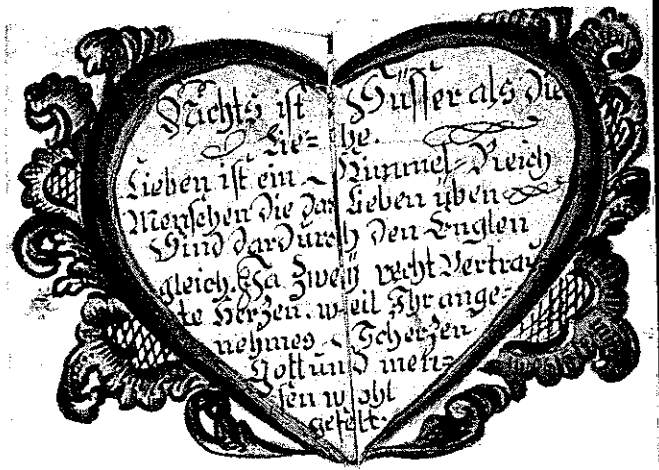 Nichts ist Süsser als die
Lie=be.
Lieben ist ein Himmel=Reich
Menschen die das Lieben üben
Sind dardurch den Englen
gleich. Ja Zweÿ recht Vertrau=
te Herzen. weil Ihr ange=
nehmes Scherzen
Gott und men=
sen wohl
gefelt.